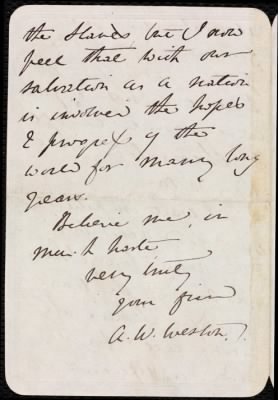 the Slaves but I now
feel that with our
salvation as a nation
is involved the hopes
& progress of the
world for many long
years.
Believe me, in
much haste
very truly
your friend
A. W. Weston.